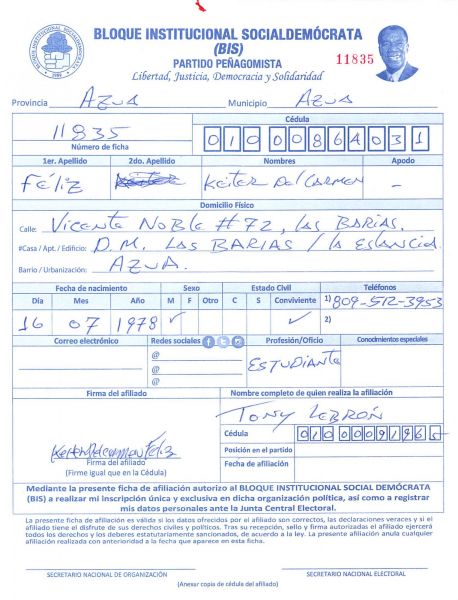 BLOQUE INSTITUCIONAL SOCIALDEMÓCRATA
(BIS)
PARTIDO PEÑAGOMISTA
Libertad, Justicia, Democracia y Solidaridad
11835
BLOQUE INSTITUCIONAL SOCIALDEMOCRATA
Provincia AZUA Municipio AZUA
11835
Número de ficha
Cédula
01000864031
1er. Apellido 2do. Apellido Nombres Apodo
Féliz Keiter Del Carmen -
Domicilio Físico
Calle: Vicente Noble #72, Las Barias.
#Casa / Apt. / Edificio: D.M. Las Barias / La Estancia
Barrio / Urbanización: AZUA.
Fecha de nacimiento Sexo Estado Civil Teléfonos
Día Mes Año M F Otro C S Conviviente 1) 809-512-3953
16 07 1978 ✓ ✓ 2)
Correo electrónico Redes sociales Profesión/Oficio Conocimientos especiales
@ Estudiante
@
@
Firma del afiliado Nombre completo de quien realiza la afiliación
Tony Lebrón
Cédula 01000091965
Posición en el partido
Fecha de afiliación
Firma del afiliado
(Firme igual que en la Cédula)
Mediante la presente ficha de afiliación autorizo al BLOQUE INSTITUCIONAL SOCIAL DEMÓCRATA
(BIS) a realizar mi inscripción única y exclusiva en dicha organización política, así como a registrar
mis datos personales ante la Junta Central Electoral.
La presente ficha de afiliación es válida si los datos ofrecidos por el afiliado son correctos, las declaraciones veraces y si el
afiliado tiene el disfrute de sus derechos civiles y políticos. Tras su recepción, sello y firma autorizadas el afiliado ejercerá
todos los derechos y los deberes estatutariamente sancionados, de acuerdo a la ley. La presente afiliación anula cualquier
afiliación realizada con anterioridad a la fecha que aparece en esta ficha.
SECRETARIO NACIONAL DE ORGANIZACIÓN SECRETARIO NACIONAL ELECTORAL
(Anexar copia de cédula del afiliado)